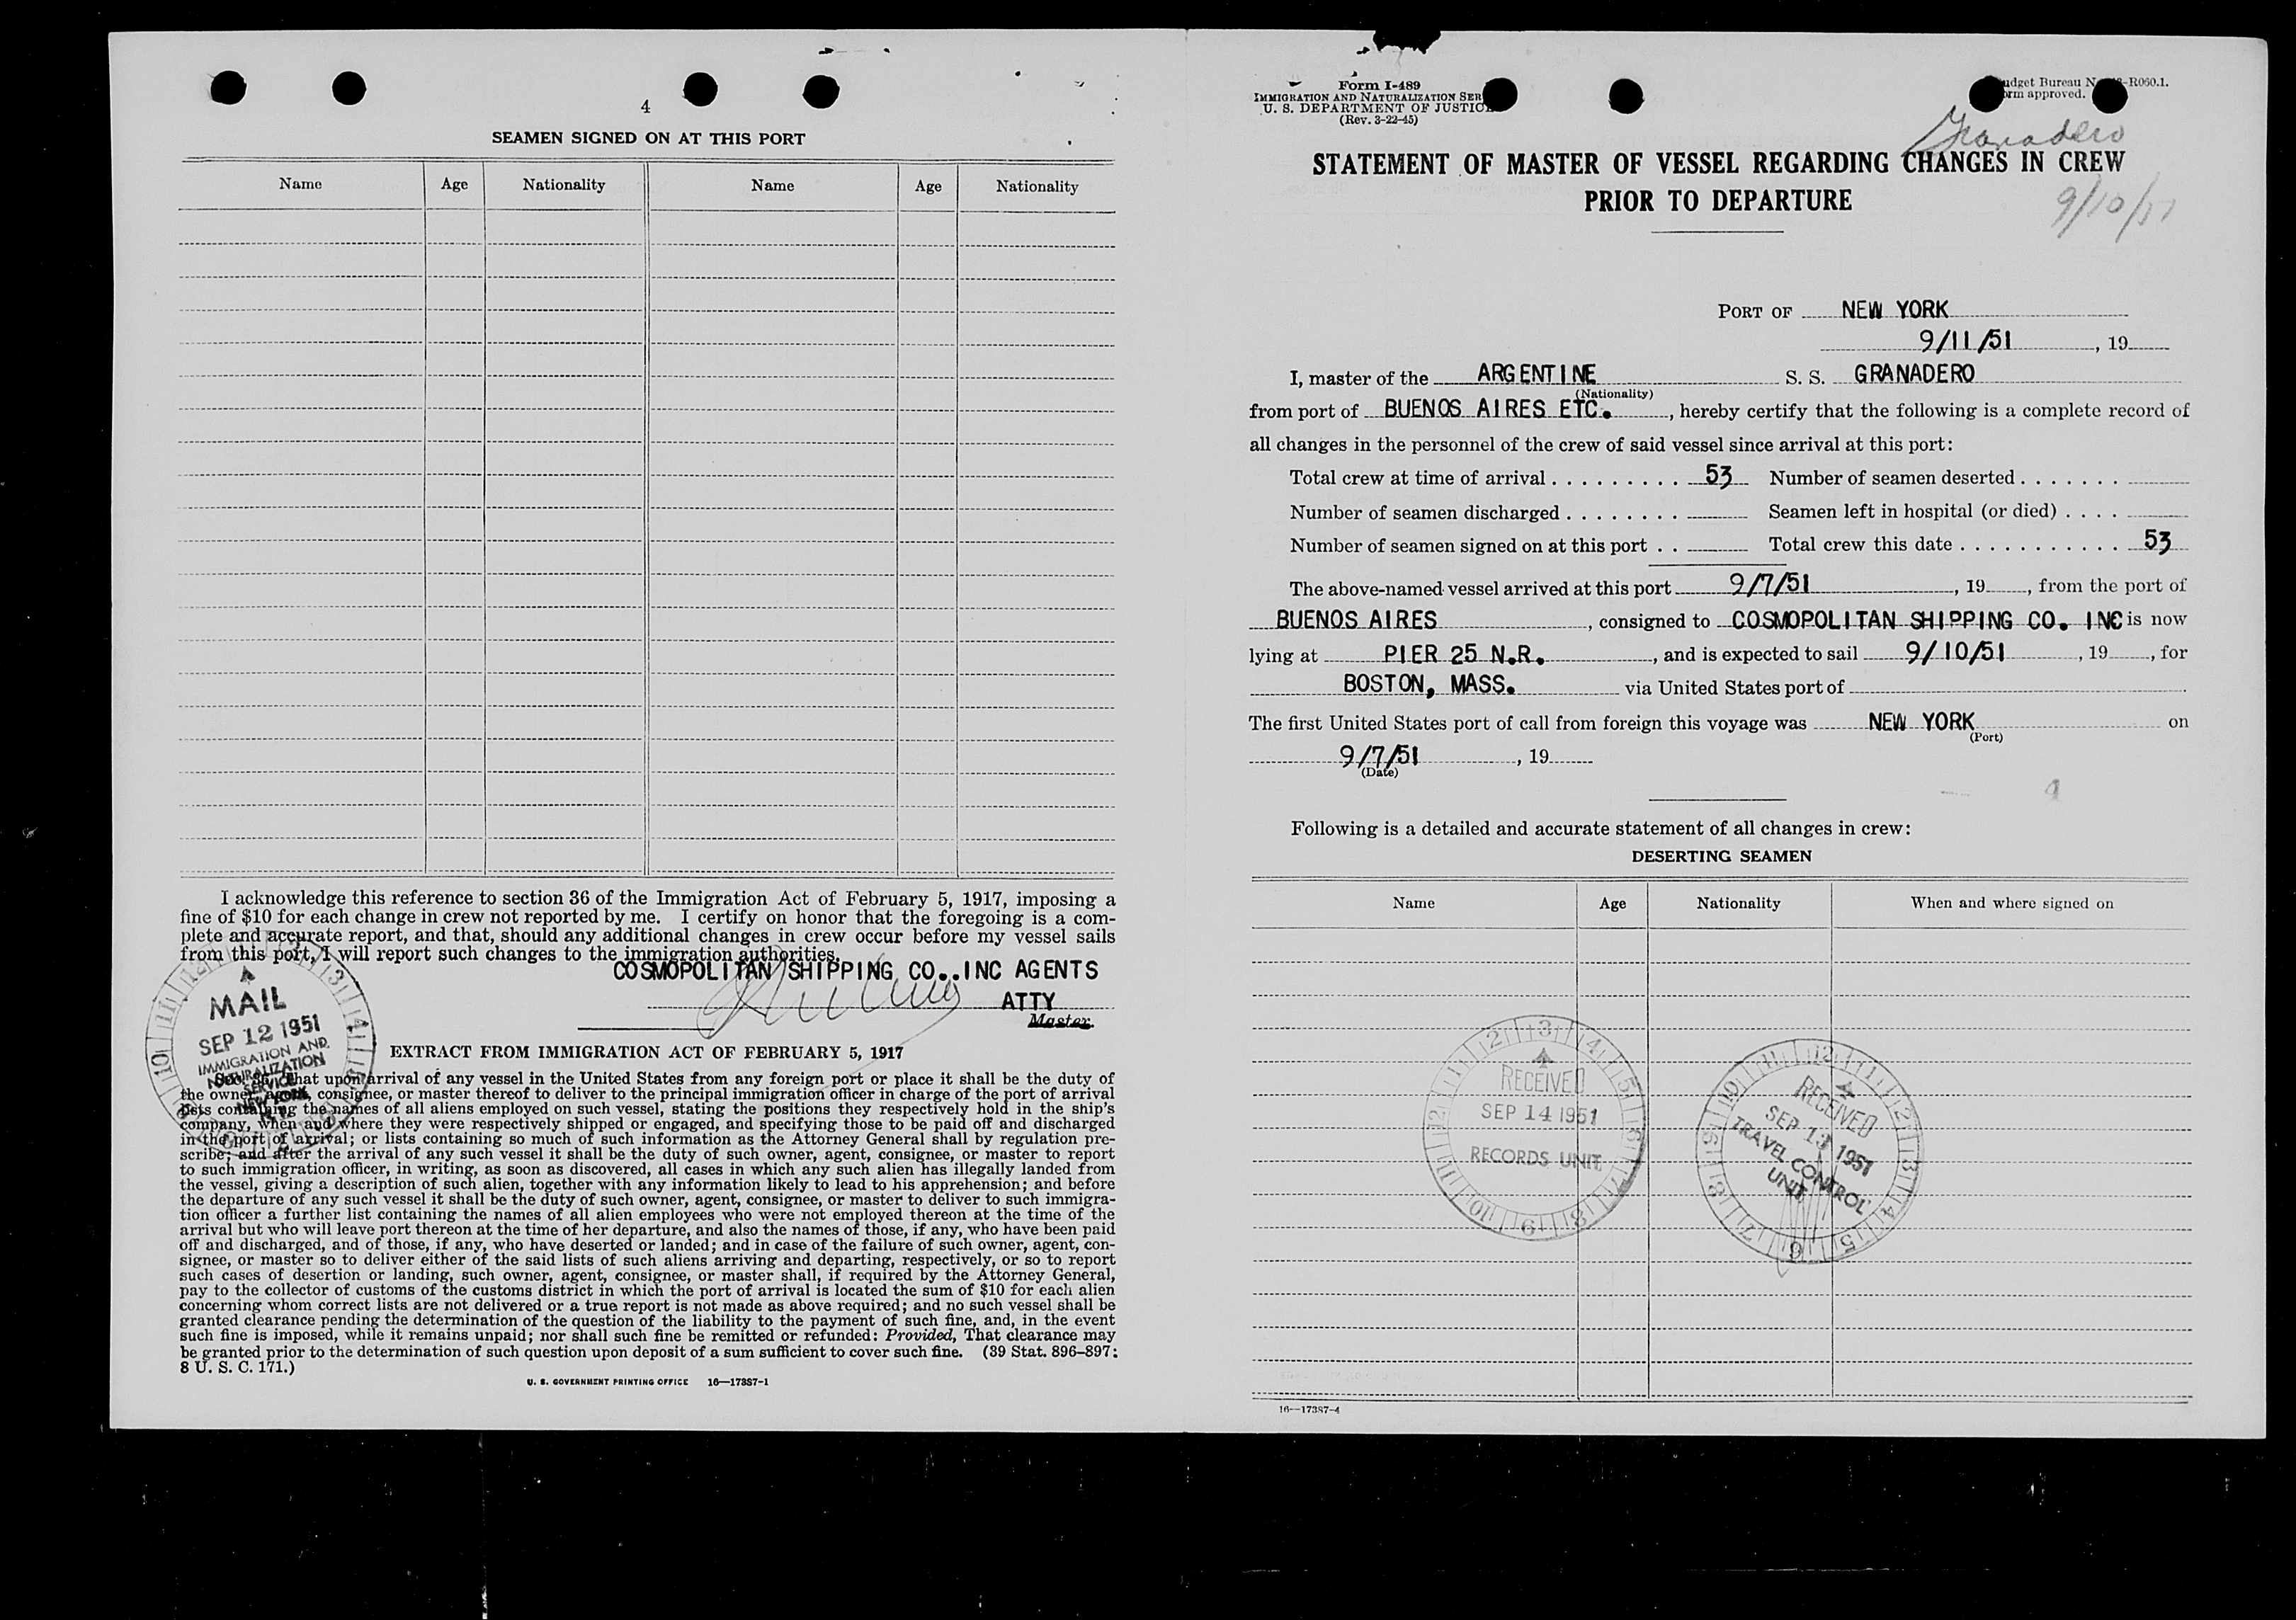 4
SEAMEN SIGNED ON AT THIS PORT
Name Age Nationality Name Age Nationality
I acknowledge this reference to section 36 of the Immigration Act of February 5, 1917, imposing a
fine of $10 for each change in crew not reported by me. I certify on honor that the foregoing is a com-
plete and accurate report, and that, should any additional changes in crew occur before my vessel sails
from this port, I will report such changes to the immigration authorities.
COSMOPOLITAN SHIPPING CO., INC AGENTS
ATTY
Master.
MAIL
SEP 12 1951
IMMIGRATION AND
NATURALIZATION
SERVICE
NEW YORK
EXTRACT FROM IMMIGRATION ACT OF FEBRUARY 5, 1917
that upon arrival of any vessel in the United States from any foreign port or place it shall be the duty of
the owner, agent, consignee, or master thereof to deliver to the principal immigration officer in charge of the port of arrival
lists containing the names of all aliens employed on such vessel, stating the positions they respectively hold in the ship's
company, when and where they were respectively shipped or engaged, and specifying those to be paid off and discharged
in the port of arrival; or lists containing so much of such information as the Attorney General shall by regulation pre-
scribe; and after the arrival of any such vessel it shall be the duty of such owner, agent, consignee, or master to report
to such immigration officer, in writing, as soon as discovered, all cases in which any such alien has illegally landed from
the vessel, giving a description of such alien, together with any information likely to lead to his apprehension; and before
the departure of any such vessel it shall be the duty of such owner, agent, consignee, or master to deliver to such immigra-
tion officer a further list containing the names of all alien employees who were not employed thereon at the time of the
arrival but who will leave port thereon at the time of her departure, and also the names of those, if any, who have been paid
off and discharged, and of those, if any, who have deserted or landed; and in case of the failure of such owner, agent, con-
signee, or master so to deliver either of the said lists of such aliens arriving and departing, respectively, or so to report
such cases of desertion or landing, such owner, agent, consignee, or master shall, if required by the Attorney General,
pay to the collector of customs of the customs district in which the port of arrival is located the sum of $10 for each alien
concerning whom correct lists are not delivered or a true report is not made as above required; and no such vessel shall be
granted clearance pending the determination of the question of the liability to the payment of such fine, and, in the event
such fine is imposed, while it remains unpaid; nor shall such fine be remitted or refunded: Provided, That clearance may
be granted prior to the determination of such question upon deposit of a sum sufficient to cover such fine. (39 Stat. 896–897;
8 U. S. C. 171.)
U. S. GOVERNMENT PRINTING OFFICE 16—17387-1
Form I-489
IMMIGRATION AND NATURALIZATION SER
U. S. DEPARTMENT OF JUSTIC
(Rev. 3-22-45)
udget Bureau N -R060.1.
rm approved.
Granadero
9/10/51
STATEMENT OF MASTER OF VESSEL REGARDING CHANGES IN CREW
PRIOR TO DEPARTURE
PORT OF NEW YORK
9/11/51, 19
I, master of the ARGENTINE S. S. GRANADERO
(Nationality)
from port of BUENOS AIRES ETC., hereby certify that the following is a complete record of
all changes in the personnel of the crew of said vessel since arrival at this port:
Total crew at time of arrival . . . . . . . . . 53 Number of seamen deserted . . . . . . .
Number of seamen discharged . . . . . . . . Seamen left in hospital (or died) . . . .
Number of seamen signed on at this port . . Total crew this date . . . . . . . . . . . 53
The above-named vessel arrived at this port 9/7/51, 19, from the port of
BUENOS AIRES, consigned to COSMOPOLITAN SHIPPING CO. INC is now
lying at PIER 25 N.R., and is expected to sail 9/10/51, 19, for
BOSTON, MASS. via United States port of
The first United States port of call from foreign this voyage was NEW YORK on
(Port)
9/7/51, 19
(Date)
Following is a detailed and accurate statement of all changes in crew:
DESERTING SEAMEN
Name Age Nationality When and where signed on
RECEIVED
SEP 14 1951
RECORDS UNIT
RECEIVED
SEP 13 1951
TRAVEL CONTROL
UNIT
16—17387-4